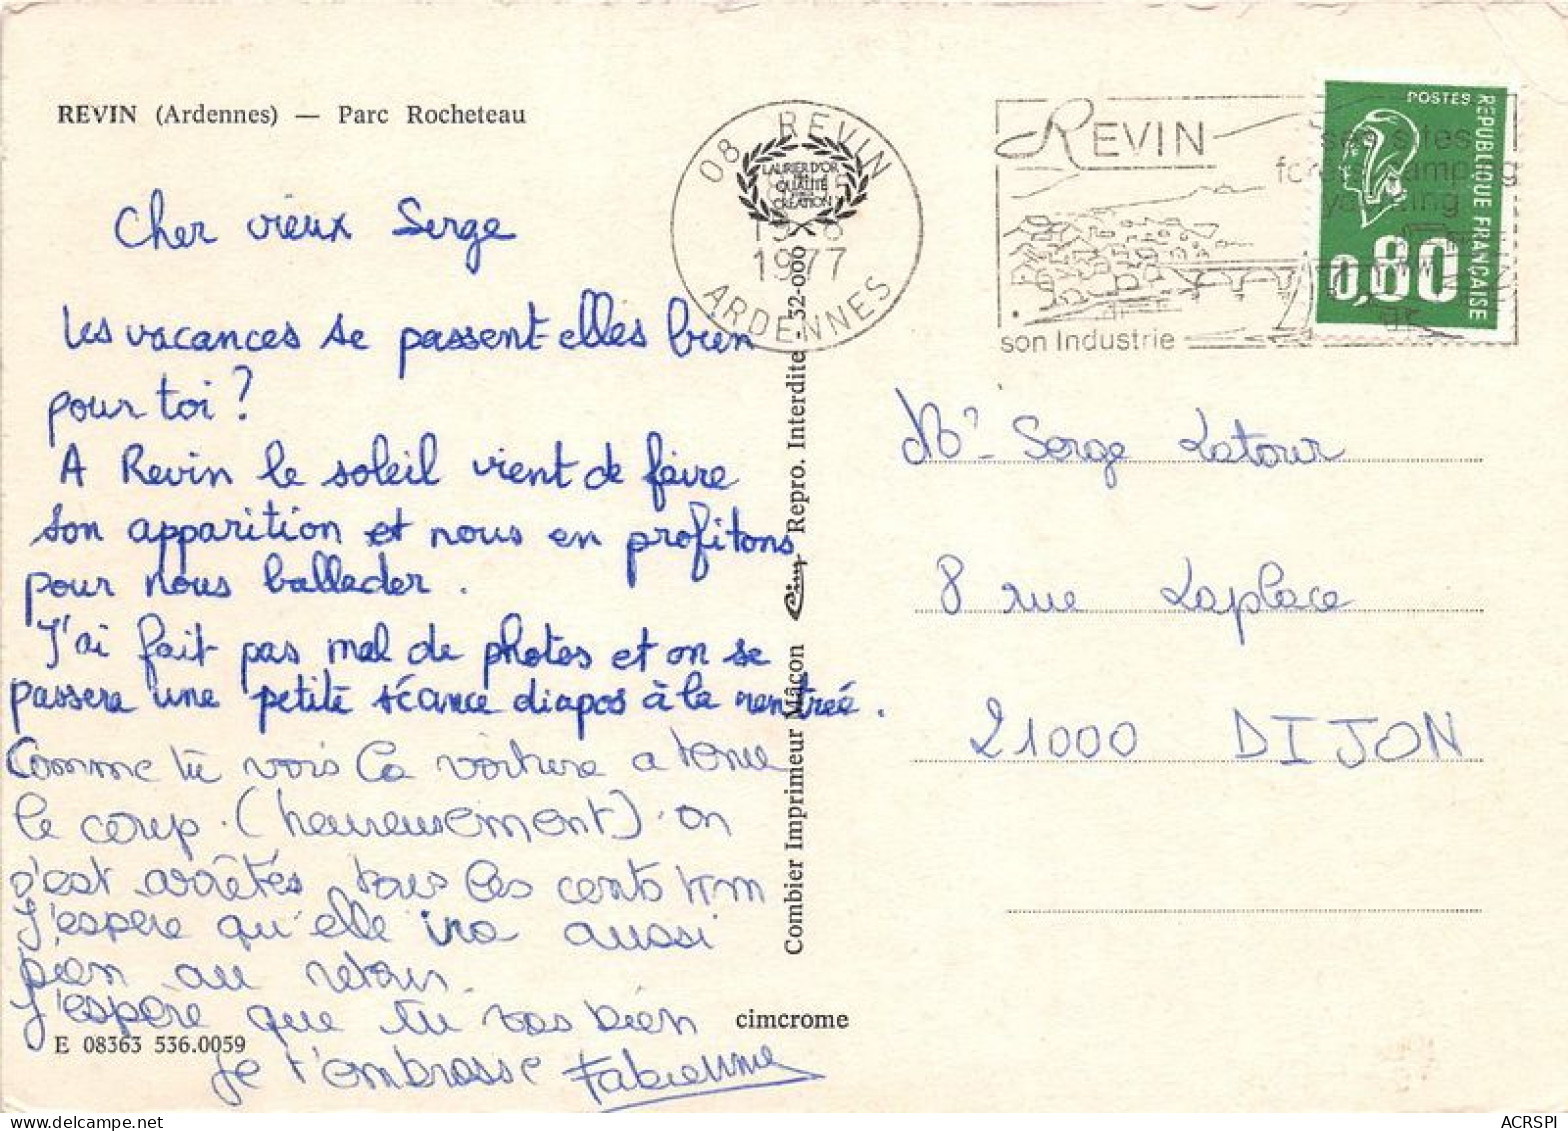 REVIN (Ardennes) — Parc Rocheteau
Cher vieux Serge
Les vacances se passent-elles bien
pour toi ?
A Revin le soleil vient de faire
son apparition et nous en profitons
pour nous ballader.
J'ai fait pas mal de photos et on se
passera une petite séance diapos à la rentrée.
Comme tu vois la voiture a tenue
le coup. (heureusement) on
s'est arrêtés tous les cents km
J'espère qu'elle ira aussi
bien au retour.
J'espère que tu vas bien
Je t'embrasse Fabienne
E 08363 536.0059
cimcrome
Combier Imprimeur Mâcon Cim Repro. Interdite 32-000
08 REVIN
1977
ARDENNES
LAURIER D'OR
QUALITÉ
CRÉATION
REVIN
ses sites
son Industrie
POSTES
REPUBLIQUE FRANÇAISE
0,80
Mr Serge Latour
8 rue Laplace
21000 DIJON
ACRSPI